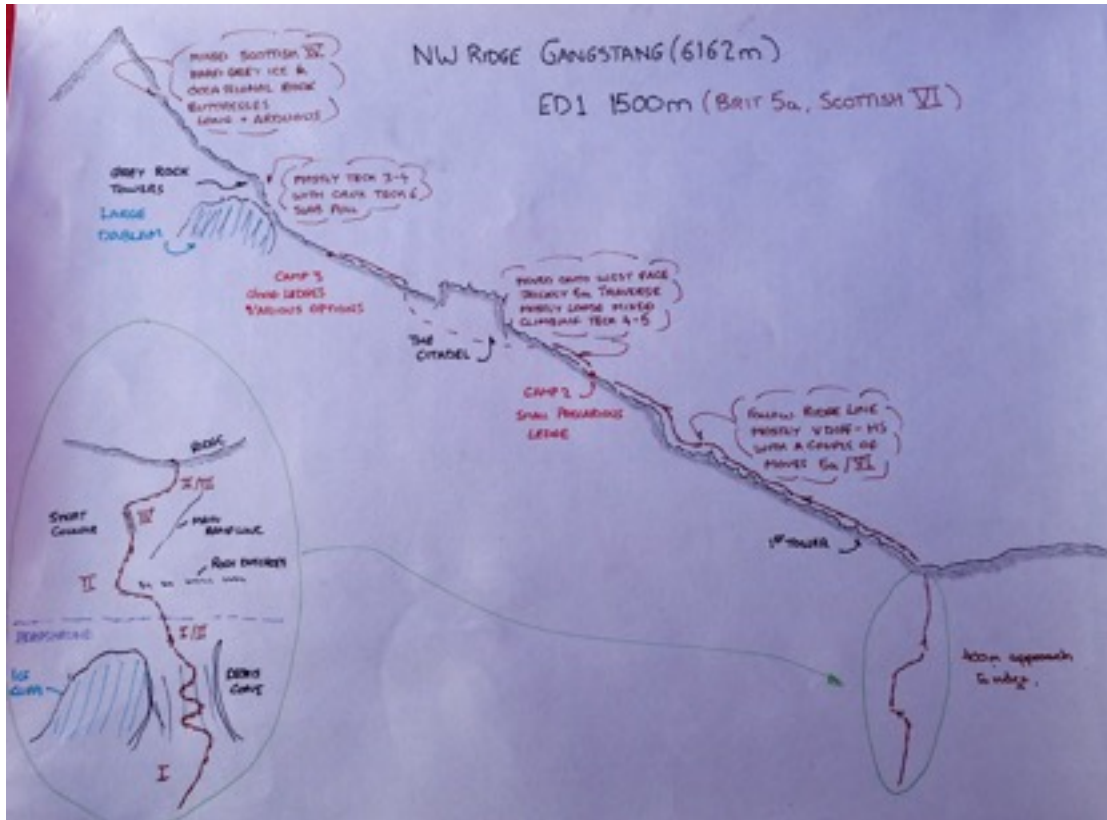 NW RIDGE GANGSTANG (6162m)
ED1 1500m (BRIT 5a, SCOTTISH VI)
MIXED SCOTTISH IV
HARD GREY ICE &
OCCASIONAL ROCK
BUTTRESSES
LONG + ARDUOUS
GREY ROCK
TOWERS
MOSTLY TECH 3-4
WITH CRUX TECH 6
SLAB PULL
LARGE
CAMP 3
GOOD LEDGES
VARIOUS OPTIONS
MOVED ONTO WEST FACE
TRICKY 5a TRAVERSE
MOSTLY LOOSE MIXED
CLIMBING TECH 4-5
THE
CITADEL
CAMP 2
SMALL PRECARIOUS
LEDGE
FOLLOW RIDGE LINE
MOSTLY VDIFF-HS
WITH A COUPLE OF
MOVES 5a/VI
1ST TOWER
400m approach
to ridge.
RIDGE
II/III
SHORT
IV
MAIN
RAMP LINE
ROCK OUTCROPS
II
BERGSCHRUND
I/II
ICE
CLIFFS
DEBRIS
CONE
I